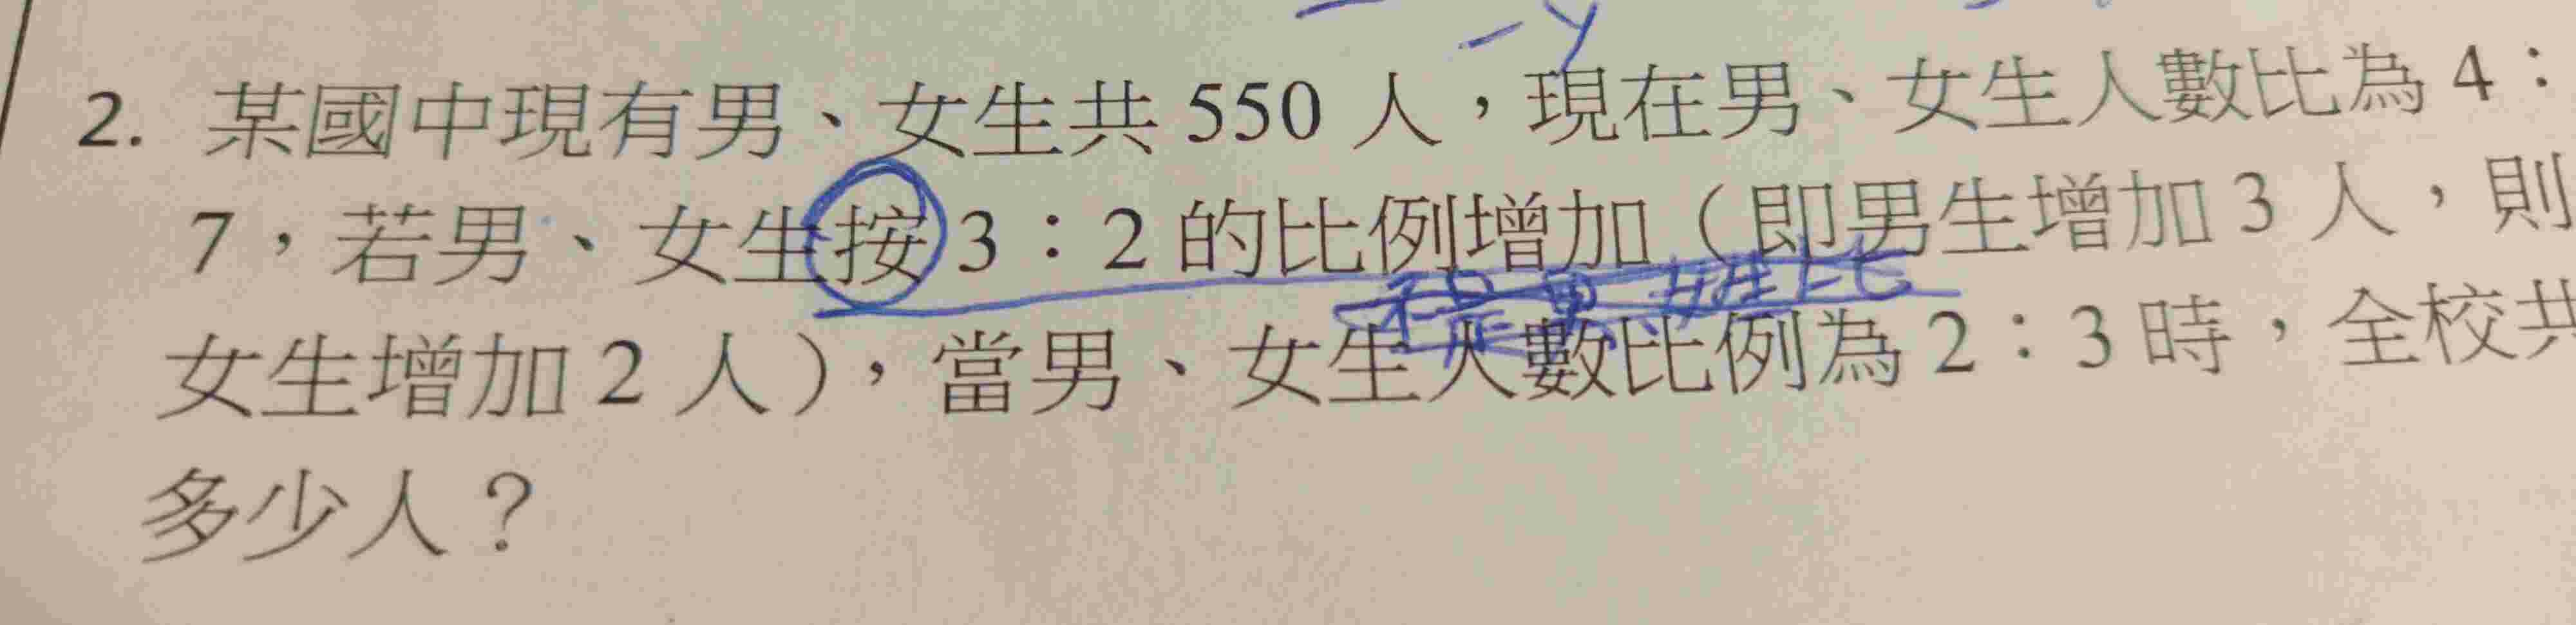 -y
2. 某國中現有男、女生共 550 人，現在男、女生人數比為 4：
7，若男、女生按 3：2 的比例增加（即男生增加 3 人，則
女生增加 2 人），當男、女生人數比例為 2：3 時，全校共
多少人？